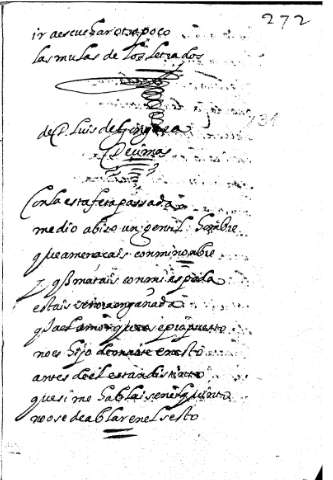 272
ir a escuchar otro poco
las mulas de los letrados
131
de D. Luis de Gongora
Decimas
Con la estafeta passada
me dio abiso un gentil hombre
que amenaçais con mi nombre
y q̃ matais con mi espada
estais señora enganada
q̃ el amor
no es hijo de en esto
antes de el estan distinto
que si me hablais en el quinto
no os e de ablar en el sesto